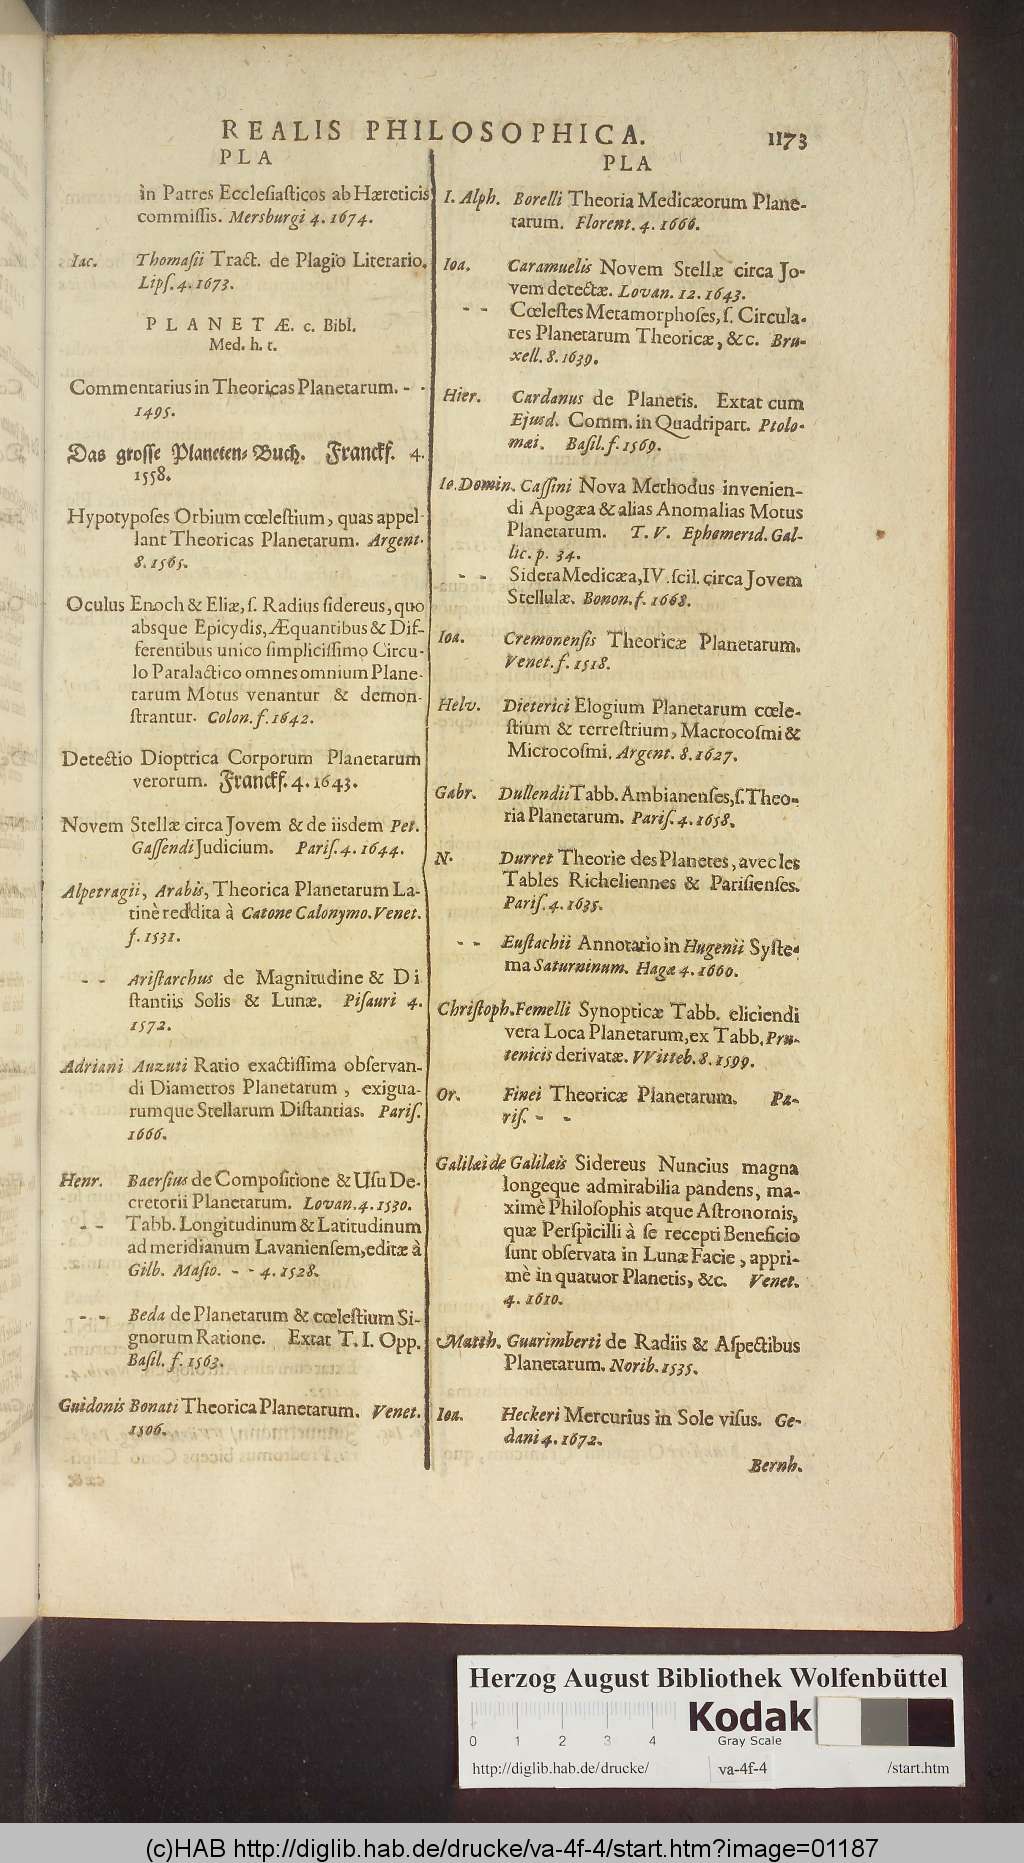 REALIS PHILOSOPHICA. 1173
PLA
in Patres Ecclesiasticos ab Hæreticis
commissis. Mersburgi 4. 1674.
Iac. Thomasii Tract. de Plagio Literario.
Lips. 4. 1673.
PLANETÆ. c. Bibl.
Med. h. t.
Commentarius in Theoricas Planetarum. - -
1495.
Das grosse Planeten-Buch. Franckf. 4.
1558.
Hypotyposes Orbium cœlestium, quas appel-
lant Theoricas Planetarum. Argent.
8. 1565.
Oculus Enoch & Eliæ, s. Radius sidereus, quo
absque Epicydis, Æquantibus & Dif-
ferentibus unico simplicissimo Circu-
lo Paralactico omnes omnium Plane-
tarum Motus venantur & demon-
strantur. Colon. f. 1642.
Detectio Dioptrica Corporum Planetarum
verorum. Franckf. 4. 1643.
Novem Stellæ circa Jovem & de iisdem Pet.
Gassendi Judicium. Paris. 4. 1644.
Alpetragii, Arabis, Theorica Planetarum La-
tinè reddita à Catone Calonymo. Venet.
f. 1531.
- - Aristarchus de Magnitudine & Di
stantiis Solis & Lunæ. Pisauri 4.
1572.
Adriani Auzuti Ratio exactissima observan-
di Diametros Planetarum, exigua-
rumque Stellarum Distantias. Paris.
1666.
Henr. Baersius de Compositione & Usu De-
cretorii Planetarum. Lovan. 4. 1530.
- - Tabb. Longitudinum & Latitudinum
ad meridianum Lavaniensem, editæ à
Gilb. Masio. - - 4. 1528.
- - Beda de Planetarum & cœlestium Si-
gnorum Ratione. Extat T. I. Opp.
Basil. f. 1563.
Guidonis Bonati Theorica Planetarum. Venet.
1506.
PLA
I. Alph. Borelli Theoria Medicæorum Plane-
tarum. Florent. 4. 1666.
Ioa. Caramuelis Novem Stellæ circa Jo-
vem detectæ. Lovan. 12. 1643.
- - Cœlestes Metamorphoses, s. Circula-
res Planetarum Theoricæ, &c. Bru-
xell. 8. 1639.
Hier. Cardanus de Planetis. Extat cum
Ejusd. Comm. in Quadripart. Ptolo-
mæi. Basil. f. 1569.
Io. Domin. Cassini Nova Methodus invenien-
di Apogæa & alias Anomalias Motus
Planetarum. T. V. Ephemerid. Gal-
lic. p. 34.
- - Sidera Medicæa, IV. scil. circa Jovem
Stellulæ. Bonon. f. 1668.
Ioa. Cremonensis Theoricæ Planetarum.
Venet. f. 1518.
Helv. Dieterici Elogium Planetarum cœle-
stium & terrestrium, Macrocosmi &
Microcosmi. Argent. 8. 1627.
Gabr. Dullendii Tabb. Ambianenses, s. Theo-
ria Planetarum. Paris. 4. 1658.
N. Durret Theorie des Planetes, avec les
Tables Richeliennes & Parisienses.
Paris. 4. 1635.
- - Eustachii Annotatio in Hugenii Syste-
ma Saturninum. Hagæ 4. 1660.
Christoph. Femelli Synopticæ Tabb. eliciendi
vera Loca Planetarum, ex Tabb. Pru-
tenicis derivatæ. VVitteb. 8. 1599.
Or. Finei Theoricæ Planetarum. Pa-
ris. - -
Galilæi de Galilæis Sidereus Nuncius magna
longeque admirabilia pandens, ma-
ximè Philosophis atque Astronomis,
quæ Perspicilli à se recepti Beneficio
sunt observata in Lunæ Facie, appri-
mè in quatuor Planetis, &c. Venet.
4. 1610.
Matth. Guarimberti de Radiis & Aspectibus
Planetarum. Norib. 1535.
Ioa. Heckeri Mercurius in Sole visus. Ge-
dani 4. 1672.
Bernh.
Herzog August Bibliothek Wolfenbüttel
0 1 2 3 4
Kodak
Gray Scale
http://diglib.hab.de/drucke/ va-4f-4 /start.htm
(c)HAB http://diglib.hab.de/drucke/va-4f-4/start.htm?image=01187